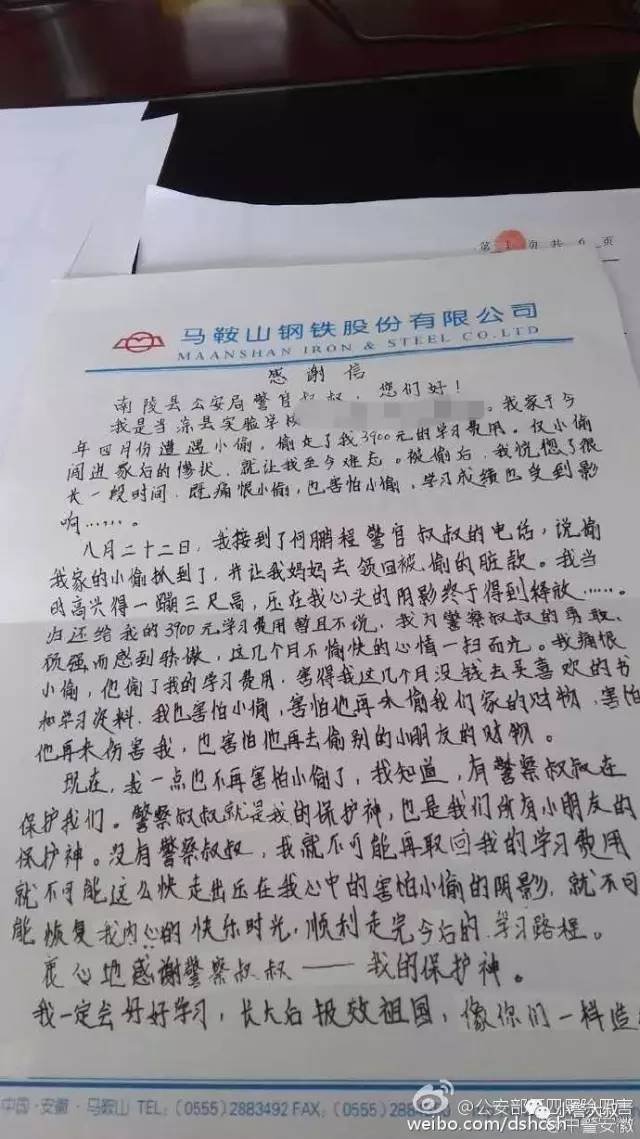 第1页共6页
马鞍山钢铁股份有限公司
MAANSHAN IRON & STEEL CO.LTD
感谢信
南陵县公安局警官叔叔，您们好！
我是当涂县实验学校 。我家于今
年四月份遭遇小偷，偷走了我3900元的学习费用。仅小偷
闯进家后的惨状，就让我至今难忘。被偷后，我恍惚了很
长一段时间，既痛恨小偷，也害怕小偷，学习成绩也受到影
响……。
八月二十二日，我接到了何鹏程警官叔叔的电话，说偷
我家的小偷抓到了，并让我妈妈去领回被偷的脏款。我当
时高兴得一蹦三尺高，压在我心头的阴影终于得到释放……。
归还给我的3900元学习费用暂且不说，我为警察叔叔的勇敢、
顽强而感到骄傲，这几个月不愉快的心情一扫而光。我痛恨
小偷，他偷了我的学习费用，害得我这几个月没钱去买喜欢的书
和学习资料，我也害怕小偷，害怕他再来偷我们家的财物，害怕
他再来伤害我，也害怕他再去偷别的小朋友的财物。
现在，我一点也不再害怕小偷了，我知道，有警察叔叔在
保护我们。警察叔叔就是我的保护神，也是我们所有小朋友的
保护神。没有警察叔叔，我就不可能再取回我的学习费用
就不可能这么快走出压在我心中的害怕小偷的阴影，就不可
能恢复我内心的快乐时光，顺利走完今后的学习路程。
衷心地感谢警察叔叔——我的保护神。
我一定会好好学习，长大后报效祖国，像你们一样造
中国·安徽·马鞍山 TEL：(0555)2883492 FAX：(0555)2884
@公安部
weibo.com/dshcsh
中警安徽